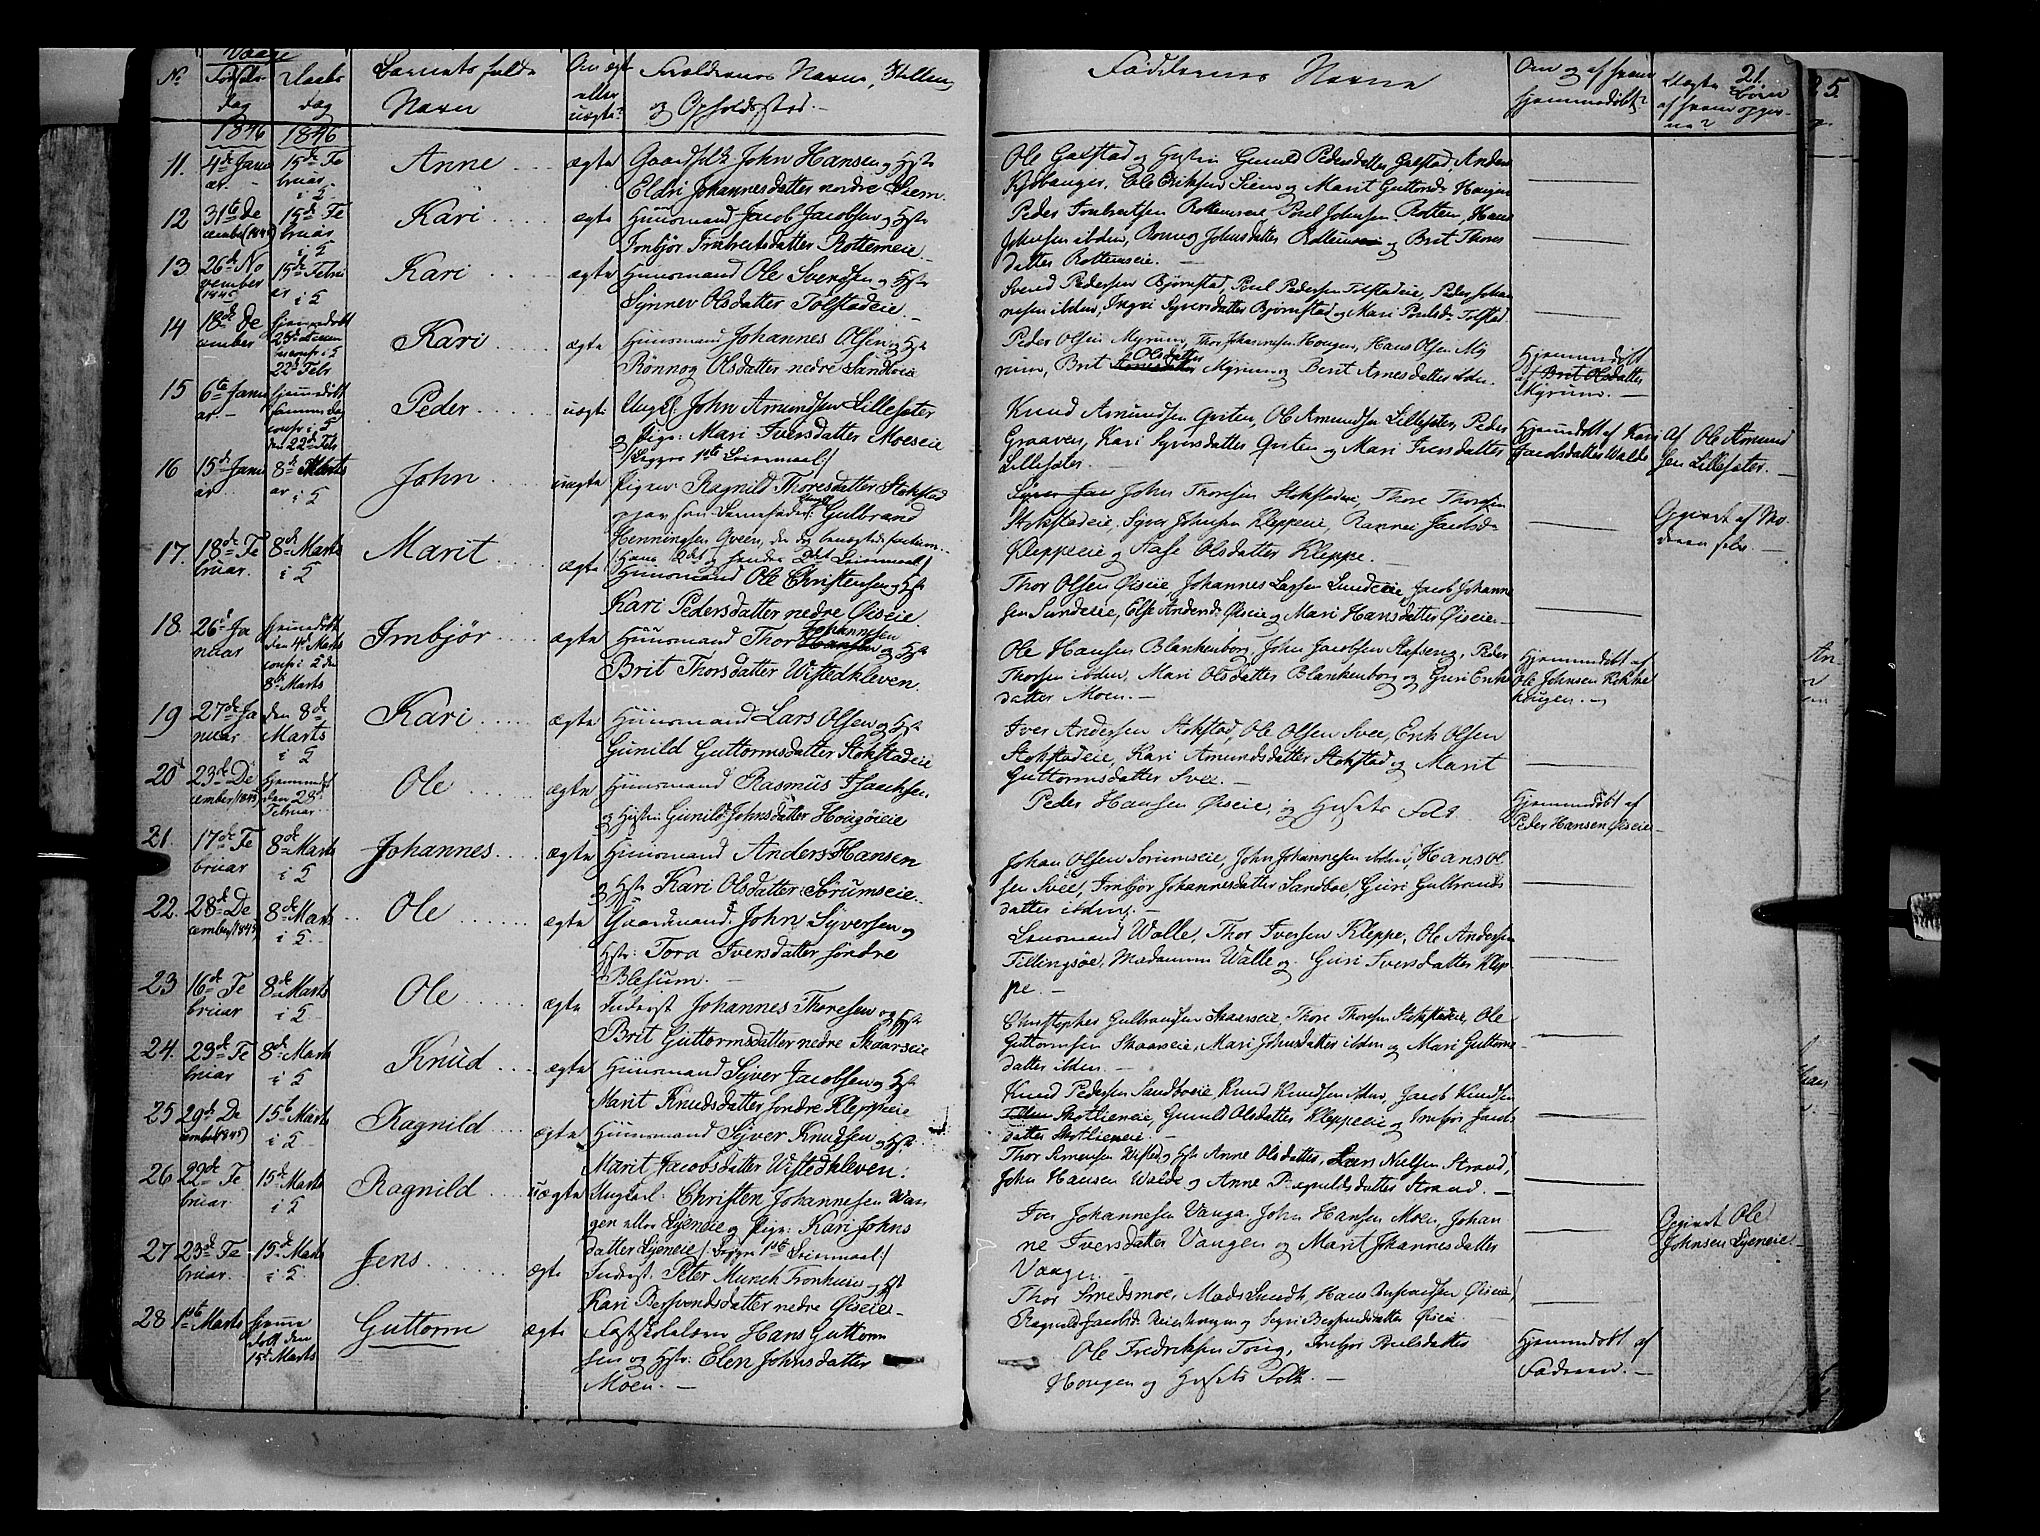 Vaage
21.
25.
No
Fødsels
dag
Daabs
dag
Barnets fulde
Navn
Om ægte
eller
uægte?
Forældrenes Navne, Stilling
og Opholdssted.
Faddernes Navne
Om og af hvem
hjemmedøbt?
uægte Børn
af hvem opgiv-
ne?
1846 1846
11. 4de Janu
ar. 15de Fe
bruar
i K Anne ægte Gaardfolk John Hansen og Hstr
Eldri Johannesdatter nordre Siem.
Ole Galstad og Hustru Gunild Pedersdatter Galstad, Anders
Ole Eriksen Siem og Marit Guttormsd. Hougen
12 31te De
cember (1845) 15de Fe
bruar
Kari ægte Huusmand Jacob Jacobsen og Hstr
Imbjør Imbertsdatter Rottemeie
Peder Imbertsen Rottemseie, Poul Johnsen Rottem, Hans
Johnsen ibden, Johnsdatter Rottemseie og Brit Thores
datter Rottemseie.
13 26de No
vember
1845 15de Febru
ar Kari ægte Huusmand Ole Svendsen og Hstr
Synnev Olsdatter Tolstadeie
Svend Pedersen Bjørnstad, Poul Pedersen Tolstadeie, Peder Johan
nesen ibden, Ingri Syversdatter Bjørnstad og Mari Poulsd. Tolstad
14 18de De
cember Hjemmedøbt
22de Febr
Kari ægte Huusmand Johannes Olsen og Hstr
Rønnog Olsdatter nedre Sandboeie
Peder Olsen Myrum, Thor Johannesen Hougen, Hans Olsen My
rum, Brit Olsdatter Myrum og Berit Arnesdatter ibden.
Hjemmedøbt
af Brit Olsdatter
Myrum.
15 6te Janu
ar Hjemmedøbt
samme Dag
den 22de Febr
Peder uægte Ungkl. John Amundsen Lillesæter
og Pige: Mari Iversdatter Moeseie
(Begges 1ste Leiermaal)
Knud Amundsen Ole Amundsen Lillesæter, Peder
Graaven, Kari Syversdatter og Mari Iversdatter
Lillesæter.
Hjemmedøbt af Kari
Jacobsdatter Walde
Af Ole Amund
sen Lillesæter.
16 15de Janu
ar 8de Marts
John uægte Pigen Ragnild Thoresdatter Stokstad
Barnefader: Gulbrand
Henningsen Qveen,
(Hans 2det og hendes 2det Leiermaal)
John Thoresen Stokstadeie, Thore Thoresen
Stokstadeie, Syver Johnsen Kleppeie, Jacobsd.
Kleppeeie og Aase Olsdatter Kleppe.
Opgivet af Mo
deren selv.
17. 18de Fe
bruar. 8de Marts
Marit ægte Huusmand Ole Christensen og Hstr
Kari Pedersdatter nedre Øiseie
Thor Olsen Øiseie, Johannes Larsen Sundeeie, Jacob Johanne
sen Sundeeie, Else Andersd. Øiseie og Mari Hansdatter Øiseie
18. 26de Ja
nuar Hjemmedøbt
den 4de Marts
8de Marts
Imbjør ægte Huusmand Thor Johannesen og Hstr
Brit Thorsdatter Wistedkleven
Ole Hansen Blankenborg, John Jacobsen Peder
Thorsen ibden, Mari Olsdatter Blankenborg og Guri Eriks
datter Moen.
Hjemmedøbt af
Ole Johnsen
haugen.
19 27de Ja
nuar den 8de
Marts
Kari ægte Huusmand Lars Olsen og Hstr
Gunild Guttormsdatter Stokstadeie
Iver Andersen Stokstad, Ole Olsen Svee, Erik Olsen
Stokstadeie, Kari Amundsdatter Stokstad og Marit
Guttormsdatter Svee.
20 23de De
cember (1845) Hjemmedøbt
den 28de
Februar
Ole ægte Huusmand Rasmus Isaachsen
og Hustru Gunild Johnsdatter
Peder Hansen Øiseie, og Husets Folk
Hjemmedøbt af
Peder Hansen Øiseie
21. 17de Fe
bruar 8de Marts
Johannes ægte Huusmand Anders Hansen
og Hstr Kari Olsdatter Sørumseie
Johan Olsen Sørumseie, John Johannesen ibden, Hans Ol
sen Svee, Imbjør Johannesdatter Sandboe, Guri Gulbrands
datter ibden.
22. 28de De
cember (1845) 8de Marts
Ole ægte Gaardmand John Syversen og
Hstr: Tora Iversdatter søndre
Blesum.
Lensmand Walle, Thor Iversen Kleppe, Ole Andersen
Tillingsøe, Madamme Walle og Guri Iversdatter Klep
pe.
23 16de Fe
bruar 8de Marts
Ole ægte Inderst Johannes Thoresen og Hstr
Brit Guttormsdatter nedre Skaarseie
Christopher Gulbransen Skaarseie, Thore Thoresen Stokstadeie, Ole
Guttormsen Skaarseie, Mari Johnsdatter ibden og Mari Guttorms
datter ibden.
24. 23de Fe
bruar 8de Marts
Knud ægte Huusmand Syver Jacobsen og Hstr
Marit Knudsdatter søndre Kleppeie
Knud Pedersen Sandboeie, Knud Knudsen ibden, Jacob Knudsen
Skotlieneie, Gunild Olsdatter Kleppeie og Imbjør Jacobs
datter Skotlieneie.
25 29de De
cember (1845) 15de Marts
Ragnild ægte Huusmand Syver Knudsen og Hstr
Marit Jacobsdatter Wistedkleven.
Thor Simensen Wisted og Hstr Anne Olsdatter, Lars Nielsen Strand,
John Hansen Walde og Anne Strand.
26 22de Fe
bruar 15de Marts
Ragnild uægte Ungkarl: Christen Johannesen Wan
gen eller og Pige: Kari Johns
datter (Begges 1ste Leiermaal)
Iver Johannesen Vangen, John Hansen Moen, Johan
ne Iversdatter Vangen og Marit Johannesdatter
Vangen.
Opgivet Ole
Johnsen
27 23de Fe
bruar. 15de Marts
Jens ægte Inderst: Peter Munch Tronhuus og Hstr
Kari Bersvendsdatter nedre Øiseie
Thor Smedsmoe, Mads Sundt, Hans Øiseie,
Ragnild Jacobsd. og Segri Bersvendsdatter Øiseie
28 1ste Marts Hjemme
døbt den
15de Marts
Guttorm ægte Fastskolelærer Hans Guttorm
sen og Hstr: Elen Johnsdatter
Moen.
Ole Fredriksen Imbjør Poulsdatter
Hougen og Husets Folk.
Hjemmedøbt af
Faderen.